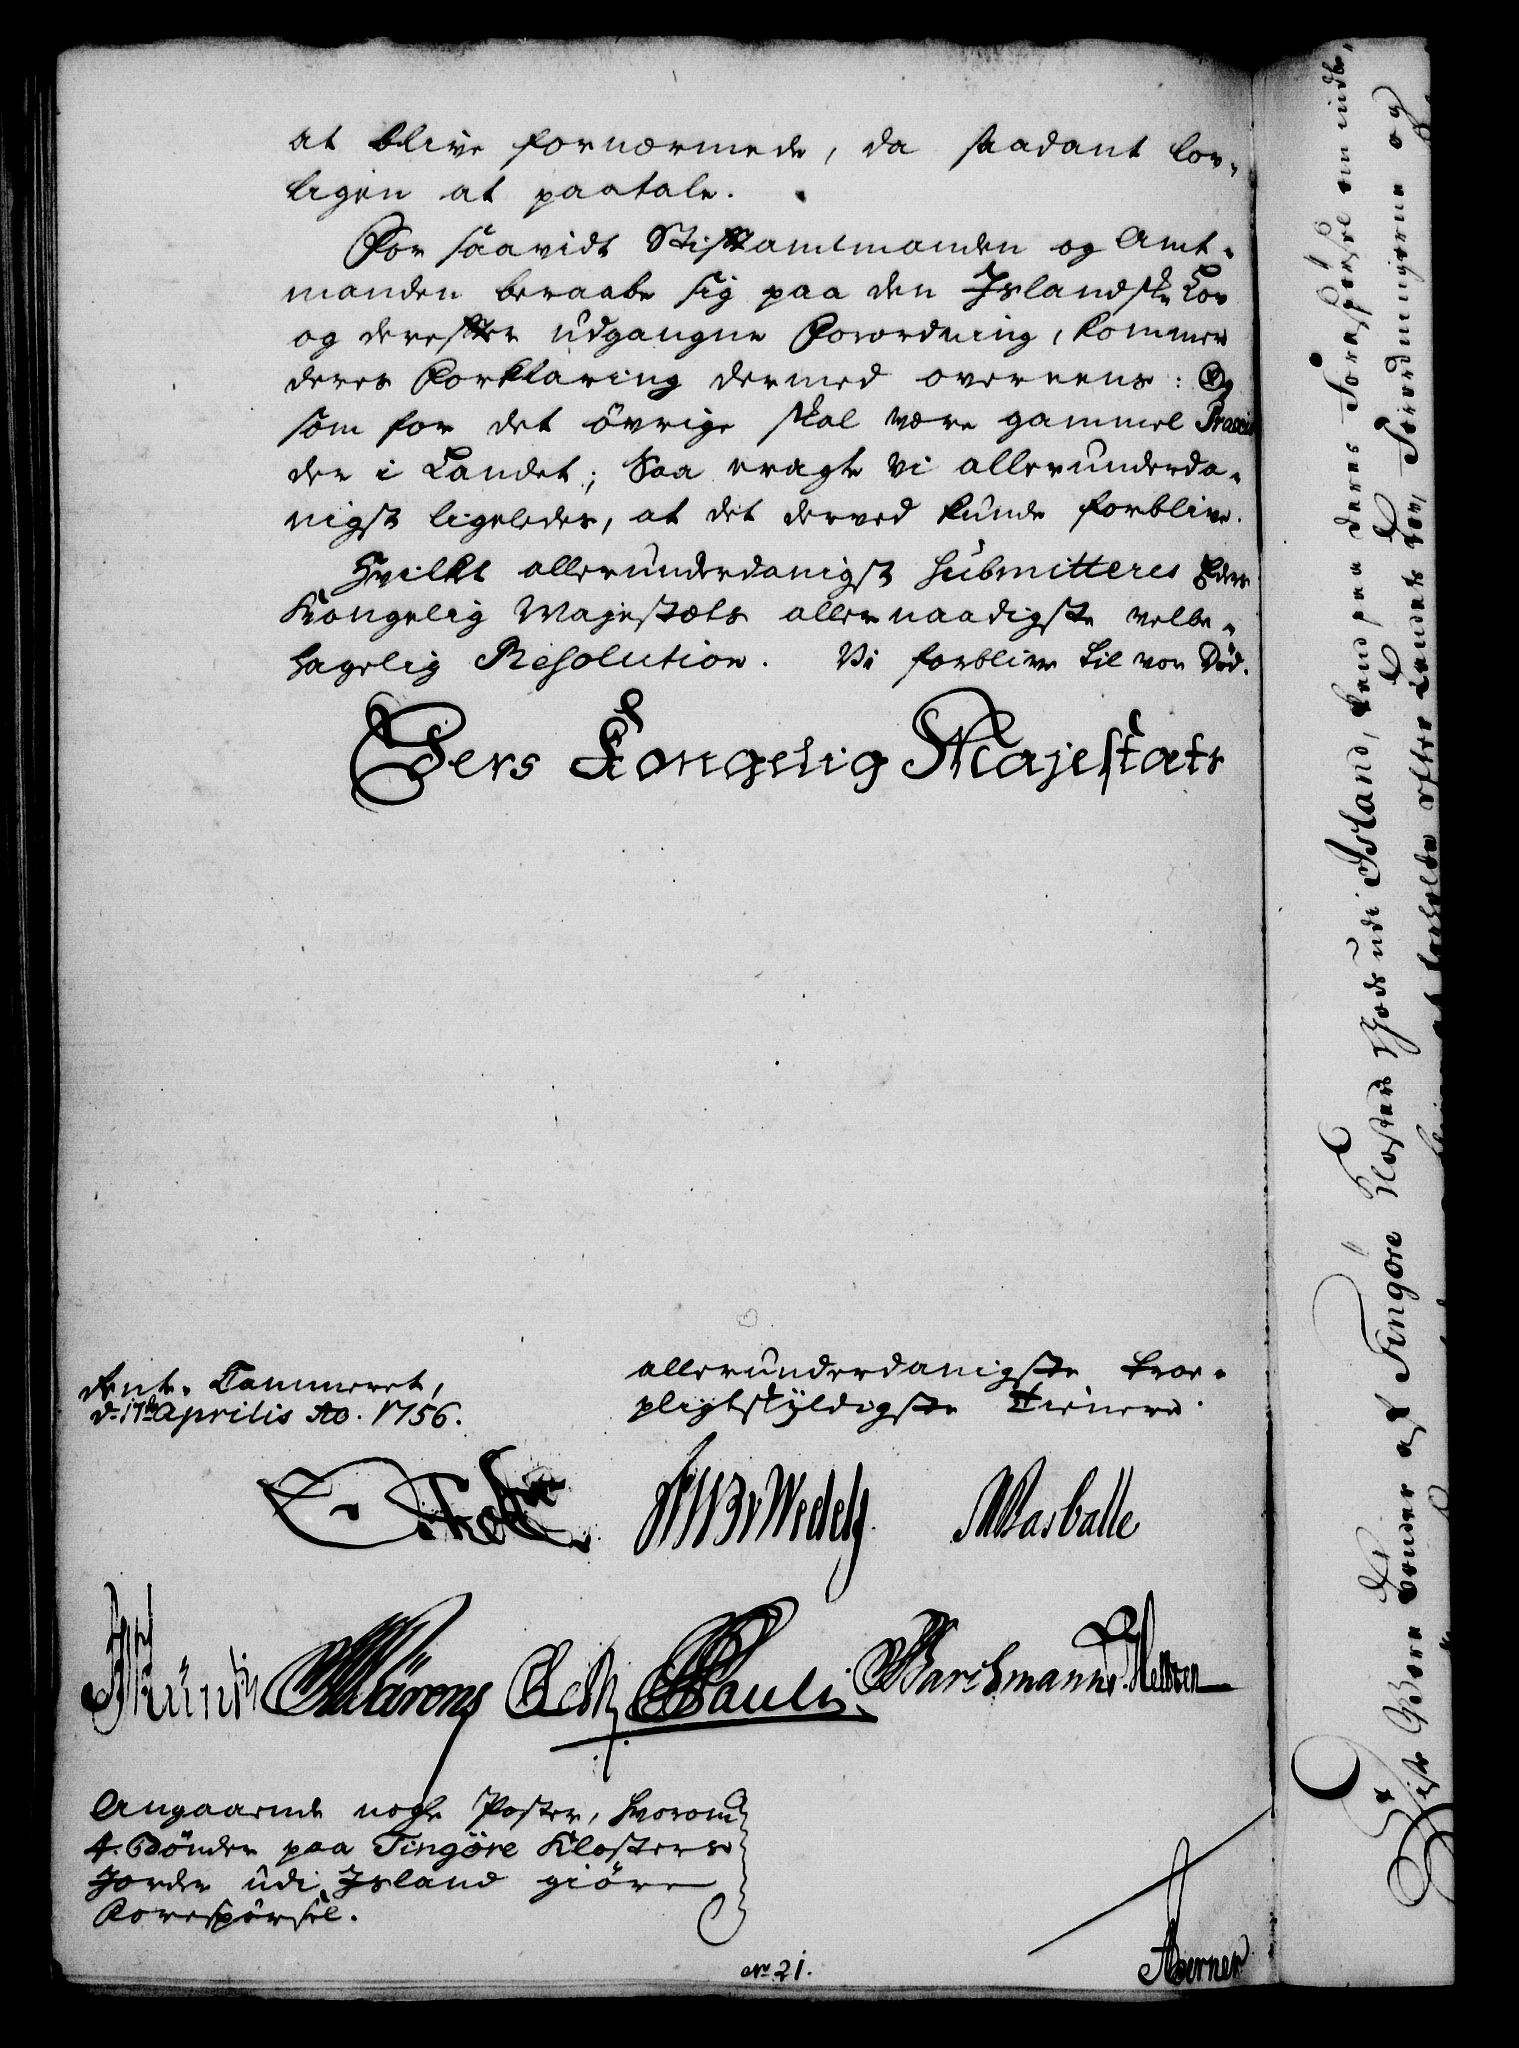 at blive fornærmede, da saadant lov-
ligen at paatale.
For saavidt Stiftamtmanden og Amt-
manden beraabe sig paa den Islandske Lov
og derefter udgangne Forordning, kommer
deres Forklaring dermed overeens: Og
som for det övrige skal være gammel Praxis
der i Landet; Saa eragte vi allerunderda-
nigst ligeledes, at det derved kunde forblive.
Hvilket allerunderdanigst submitteres Eders
Kongelig Majestæts allernaadigste velbe-
hagelig Resolution. Vi forblive til vor Död.
Eders Kongelig Majestæts
Rente-Cammeret,
d. 17de Aprilis Ao. 1756.
allerunderdanigste troe-
pligtskyldigste Tienere.
Wedels Basballe
Pauli Barchmann
Angaaende nogle Poster, hvorom
4. Bönder paa Tingöre Klosters
Jorder udi Island giöre
Forespörsel.
No. 21.
Berner
Disse Gore Bonder af Tingöre Klosters Gods udi Island, kand paa deres Forespørsel om indb,
Forordningerne og
efter Landets Lov,